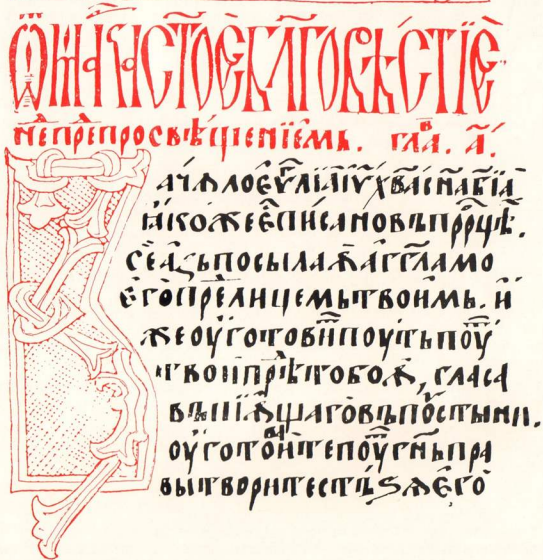 Ѿ ма стое бл҃говѣстїе
неⷣ прѣⷣ просвѣщенїемь. глаⷡ. а҃.
ачѧло еѵⷢлїа іѵ хв҃а сн҃а бж҃їа
ꙗкоже е писано въ прⷪрцѣ.
се азь посылаѫ аггла мо
его прѣⷣ лицемь твоимь. и
же оуготовиⷮ поуть поуⷮ
твои прѣⷣ тобоѫ, гласа
въпїѫщаго въ поⷹстыни.
оуготовⷶите поуⷮ гн҃ь пра
вы творите стьѕѧ его